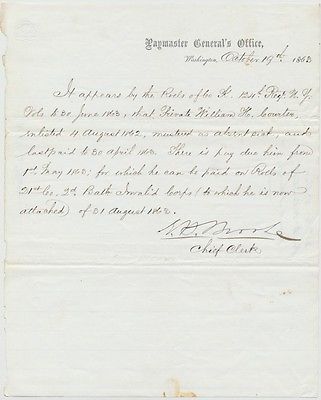 Paymaster General's Office,
Washington, October 19th, 1863
It appears by the Rolls of Co H. 124th Regt. N. Y.
Vols to 30 June 1863, that Private William H.
enlisted 4 August 1862, musters as absent sick, and
last paid to 30 April 1863. There is pay due him from
1st May 1863; for which he can be paid on Rolls of
21st Co, 2d Batt Invalid Corps (to which he is now
attached) of 31 August 1863.
Chief Clerk